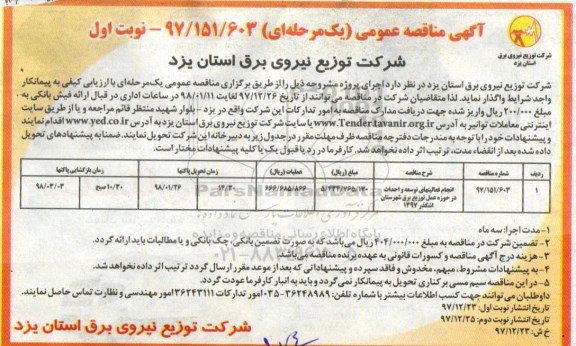 آگهی مناقصه عمومی (یک‌مرحله‌ای) ۹۷/۱۵۱/۶۰۳ - نوبت اول
شرکت توزیع نیروی برق استان یزد
شرکت توزیع نیروی برق
استان یزد
شرکت توزیع نیروی برق استان یزد در نظر دارد اجرای پروژه مشروحه ذیل را از طریق برگزاری مناقصه عمومی یک‌مرحله‌ای با ارزیابی کیفی به پیمانکار
واجد شرایط واگذار نماید. لذا متقاضیان شرکت در مناقصه می‌توانند از تاریخ ۹۷/۱۲/۲۶ لغایت ۹۸/۰۱/۱۱ در ساعات اداری در قبال ارائه فیش بانکی به
مبلغ ۲۰۰/۰۰۰ ریال واریز شده جهت دریافت مدارک مناقصه به امور تدارکات این شرکت واقع در یزد - بلوار شهید منتظر قائم مراجعه و یا از طریق سایت
اینترنتی معاملات توانیر به آدرس www.Tender.tavanir.org.ir یا سایت شرکت توزیع نیروی برق استان یزد به آدرس www.yed.co.ir اقدام نمایند
و پیشنهادات خود را با توجه به مندرجات دفترچه مناقصه ظرف مهلت مقرر در جدول زیر به دبیرخانه این شرکت تحویل نمایند. ضمنا به پیشنهادهای تحویل
داده شده بعد از انقضاء مدت، ترتیب اثر داده نخواهد شد. کارفرما در رد یا قبول یک یا کلیه پیشنهادات مختار است.
ردیف شماره مناقصه شرح مناقصه مبلغ (ریال) عملیات (ریال) زمان تحویل پاکتها زمان بازگشایی پاکتها
۱ ۹۷/۱۵۱/۶۰۳ انجام فعالیتهای توسعه و احداث در حوزه عمل توزیع برق شهرستان اشکذر ۱۳۹۷ ۵/۲۳۳/۷۶۵/۱۷۰ ۶۶۶/۶۸۵/۸۶۶ ۱۴/۳۰ ۹۸/۰۱/۲۶ ۱۰/۳۰ صبح ۹۸/۰۲/۰۳
۱- مدت اجرا: سه ماه
۲- تضمین شرکت در مناقصه به مبلغ ۴۰۴/۰۰۰/۰۰۰ ریال می‌باشد که به صورت تضمین بانکی، چک بانکی و یا مطالبات باید ارائه گردد.
۳- هزینه درج آگهی مناقصه و کسورات قانونی به عهده برنده مناقصه می‌باشد
۴- به پیشنهادات مشروط، مبهم، مخدوش و فاقد سپرده و پیشنهاداتی که بعد از موعد مقرر ارسال گردد ترتیب اثر داده نخواهد شد.
۵- در این مناقصه سیم مسی برکناری تحویل به پیمانکار نمی‌گردد و باید به انبار کارفرما عودت گردد.
داوطلبان می‌توانند جهت کسب اطلاعات بیشتر با شماره تلفن: ۳۶۲۴۸۹۸۹-۰۳۵ امور تدارکات ۳۶۲۴۳۱۱۱ امور مهندسی و نظارت تماس حاصل نمایند.
تاریخ انتشار نوبت اول: ۹۷/۱۲/۲۳
تاریخ انتشار نوبت دوم: ۹۷/۱۲/۲۵
خ ش: ۹۷/۱۲/۲۳
شرکت توزیع نیروی برق استان یزد
ParsNamadData